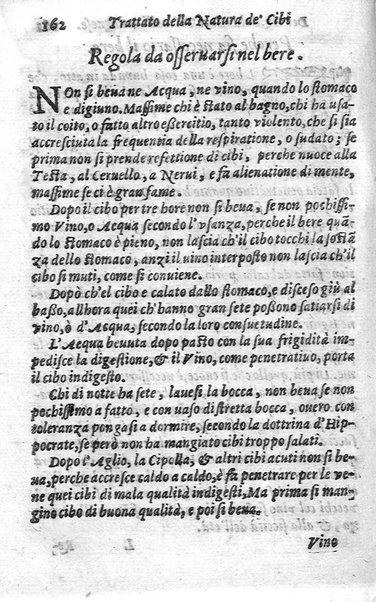 162 Trattato della Natura de' Cibi
Regola da osseruarsi nel bere.
NOn si beua ne Acqua, ne vino, quando lo stomaco
e digiuno. Massime chi è stato al bagno, chi ha vsa-
to il coito, o fatto altro essercitio, tanto violento, che si sia
accresciuta la frequenza della respiratione, o sudato; se
prima non si prende refettione di cibi, perche nuoce alla
Testa, al Ceruello, a Nerui, e fa alienatione di mente,
massime se ci è gran fame.
Dopo il cibo per tre hore non si beua, se non pochissi-
mo Vino, o Acqua secondo l'vsanza, perche il bere quā-
do lo stomaco è pieno, non lascia ch'il cibo tocchi la sostā
za dello stomaco, anzi il vino interposto non lascia ch'il
cibo si muti, come si conuiene.
Dopò ch'el cibo e calato dallo stomaco, e disceso giù al
basso, allhora quei ch'hanno gran sete possono satiarsi di
vino, ò d'Acqua, secondo la loro consuetudine.
L'Acqua beuuta dopo pasto con la sua frigidità im-
pedisce la digestione, & il Vino, come penetratiuo, porta
il cibo indigesto.
Chi di notte ha sete, lauesi la bocca, non beua se non
pochissimo a fatto, e con vaso di stretta bocca, ouero con
toleranza pongasi a dormire, secondo la dottrina d'Hip-
pocrate, se però non ha mangiato cibi troppo salati.
Dopo l'Aglio, la Cipolla, & altri cibi acuti non si be-
ua, perche accresce caldo a caldo, è fa penetrare per le ve-
ne quei cibi di mala qualità indigesti, Ma prima si man-
gino cibo di buona qualità, e poi si beua.
Vino